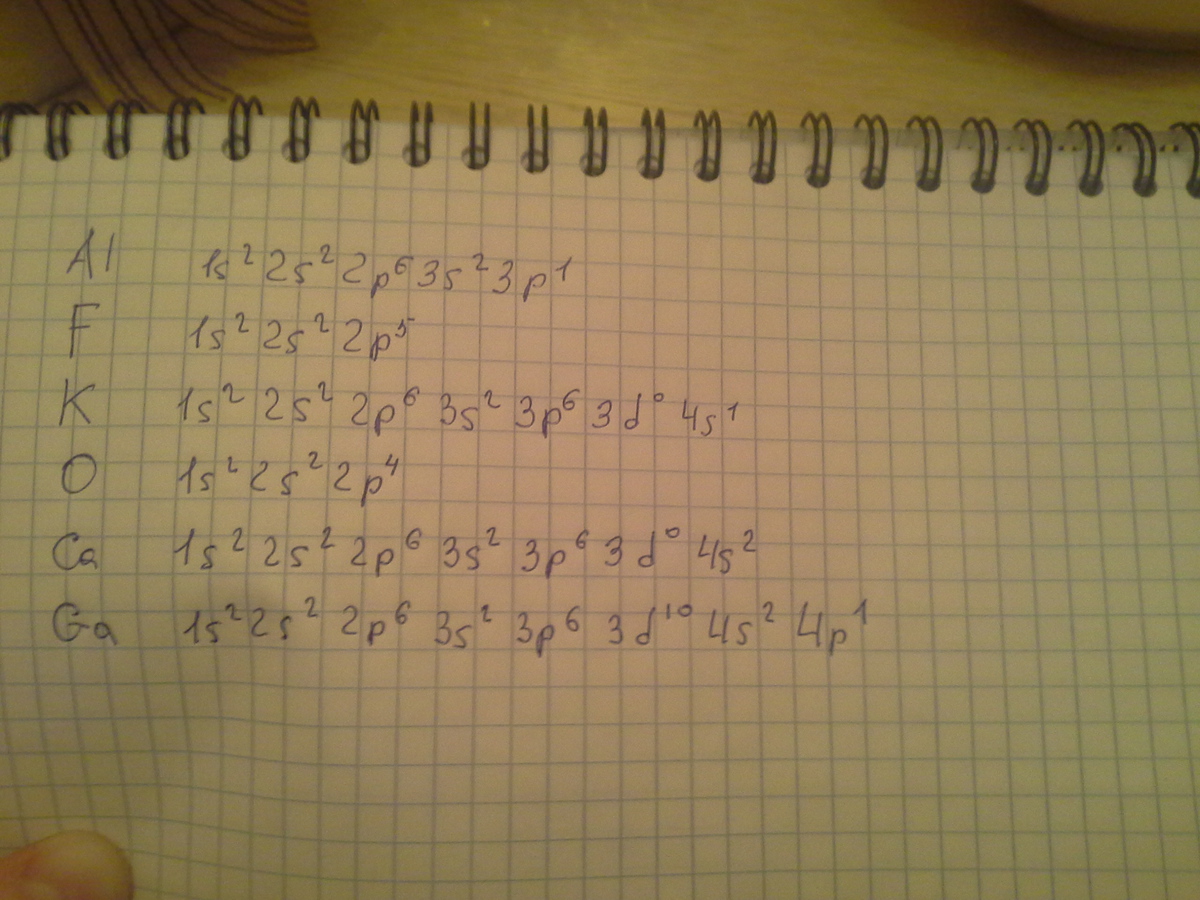 Al 1s² 2s² 2p⁶ 3s² 3p¹
F 1s² 2s² 2p⁵
K 1s² 2s² 2p⁶ 3s² 3p⁶ 3d⁰ 4s¹
O 1s² 2s² 2p⁴
Ca 1s² 2s² 2p⁶ 3s² 3p⁶ 3d⁰ 4s²
Ga 1s² 2s² 2p⁶ 3s² 3p⁶ 3d¹⁰ 4s² 4p¹